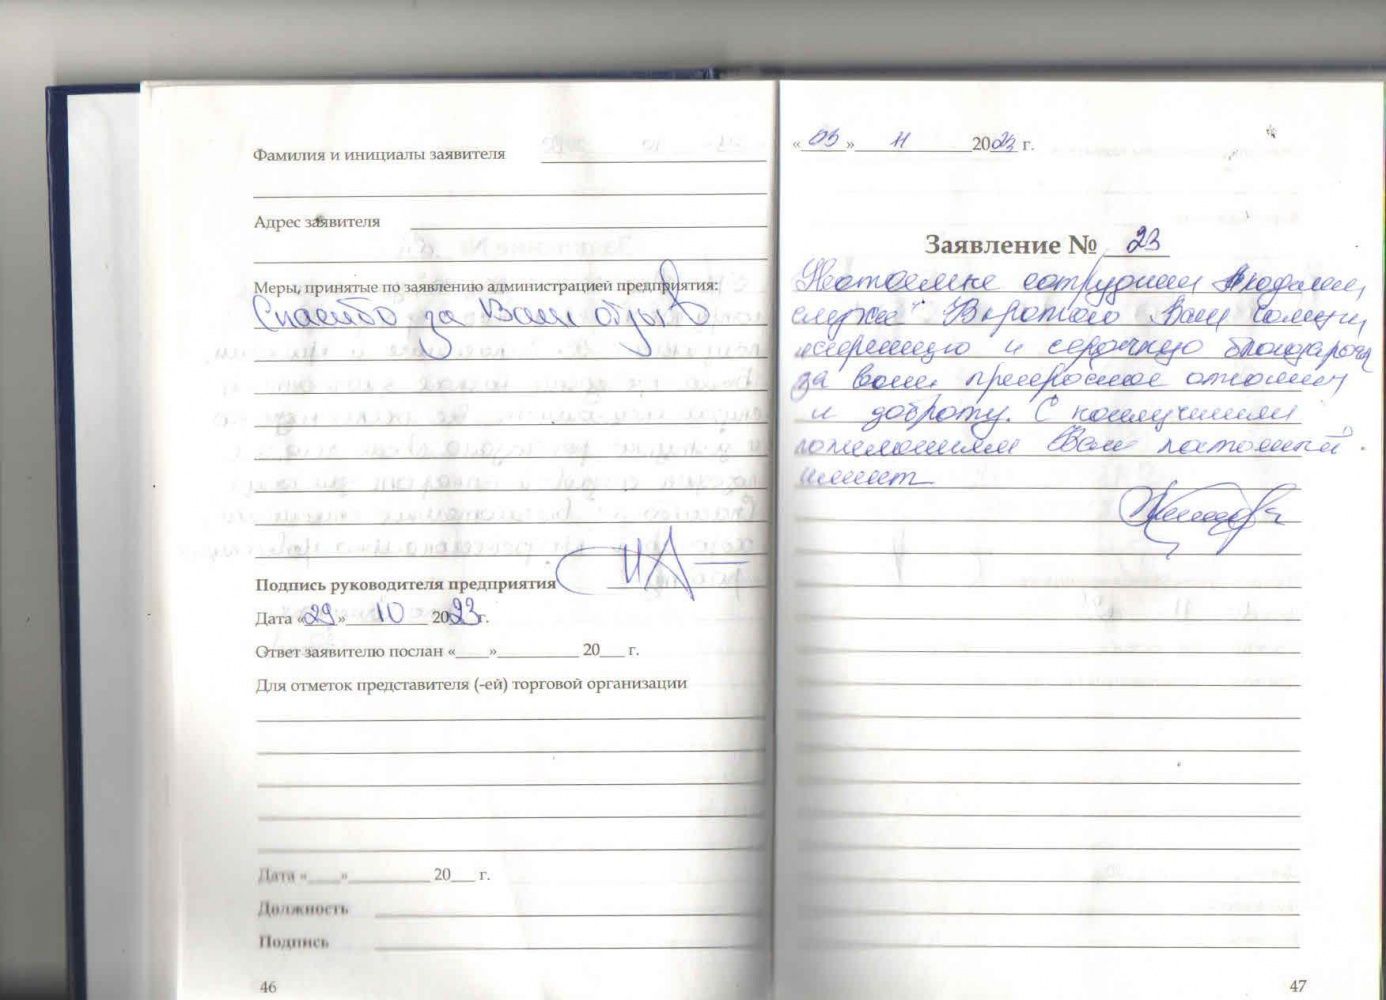 Фамилия и инициалы заявителя
Адрес заявителя
Меры, принятые по заявлению администрацией предприятия:
Спасибо за Ваш отзыв
Подпись руководителя предприятия
Дата «29» 10 2023 г.
Ответ заявителю послан «____»__________ 20___ г.
Для отметок представителя (-ей) торговой организации
Дата «____»__________ 20___ г.
Должность
Подпись
46
«03» 11 2023 г.
Заявление № 23
сотрудники
службе Выражаю Вам
и сердечную
за ваше прекрасное отношение
и доброту. С наилучшими
пожеланиями Ваш постоянный
клиент
47